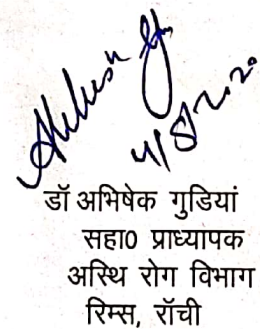 Abhishek
4/8/2020
डॉ अभिषेक गुडियां
सहा0 प्राध्यापक
अस्थि रोग विभाग
रिम्स, रॉची